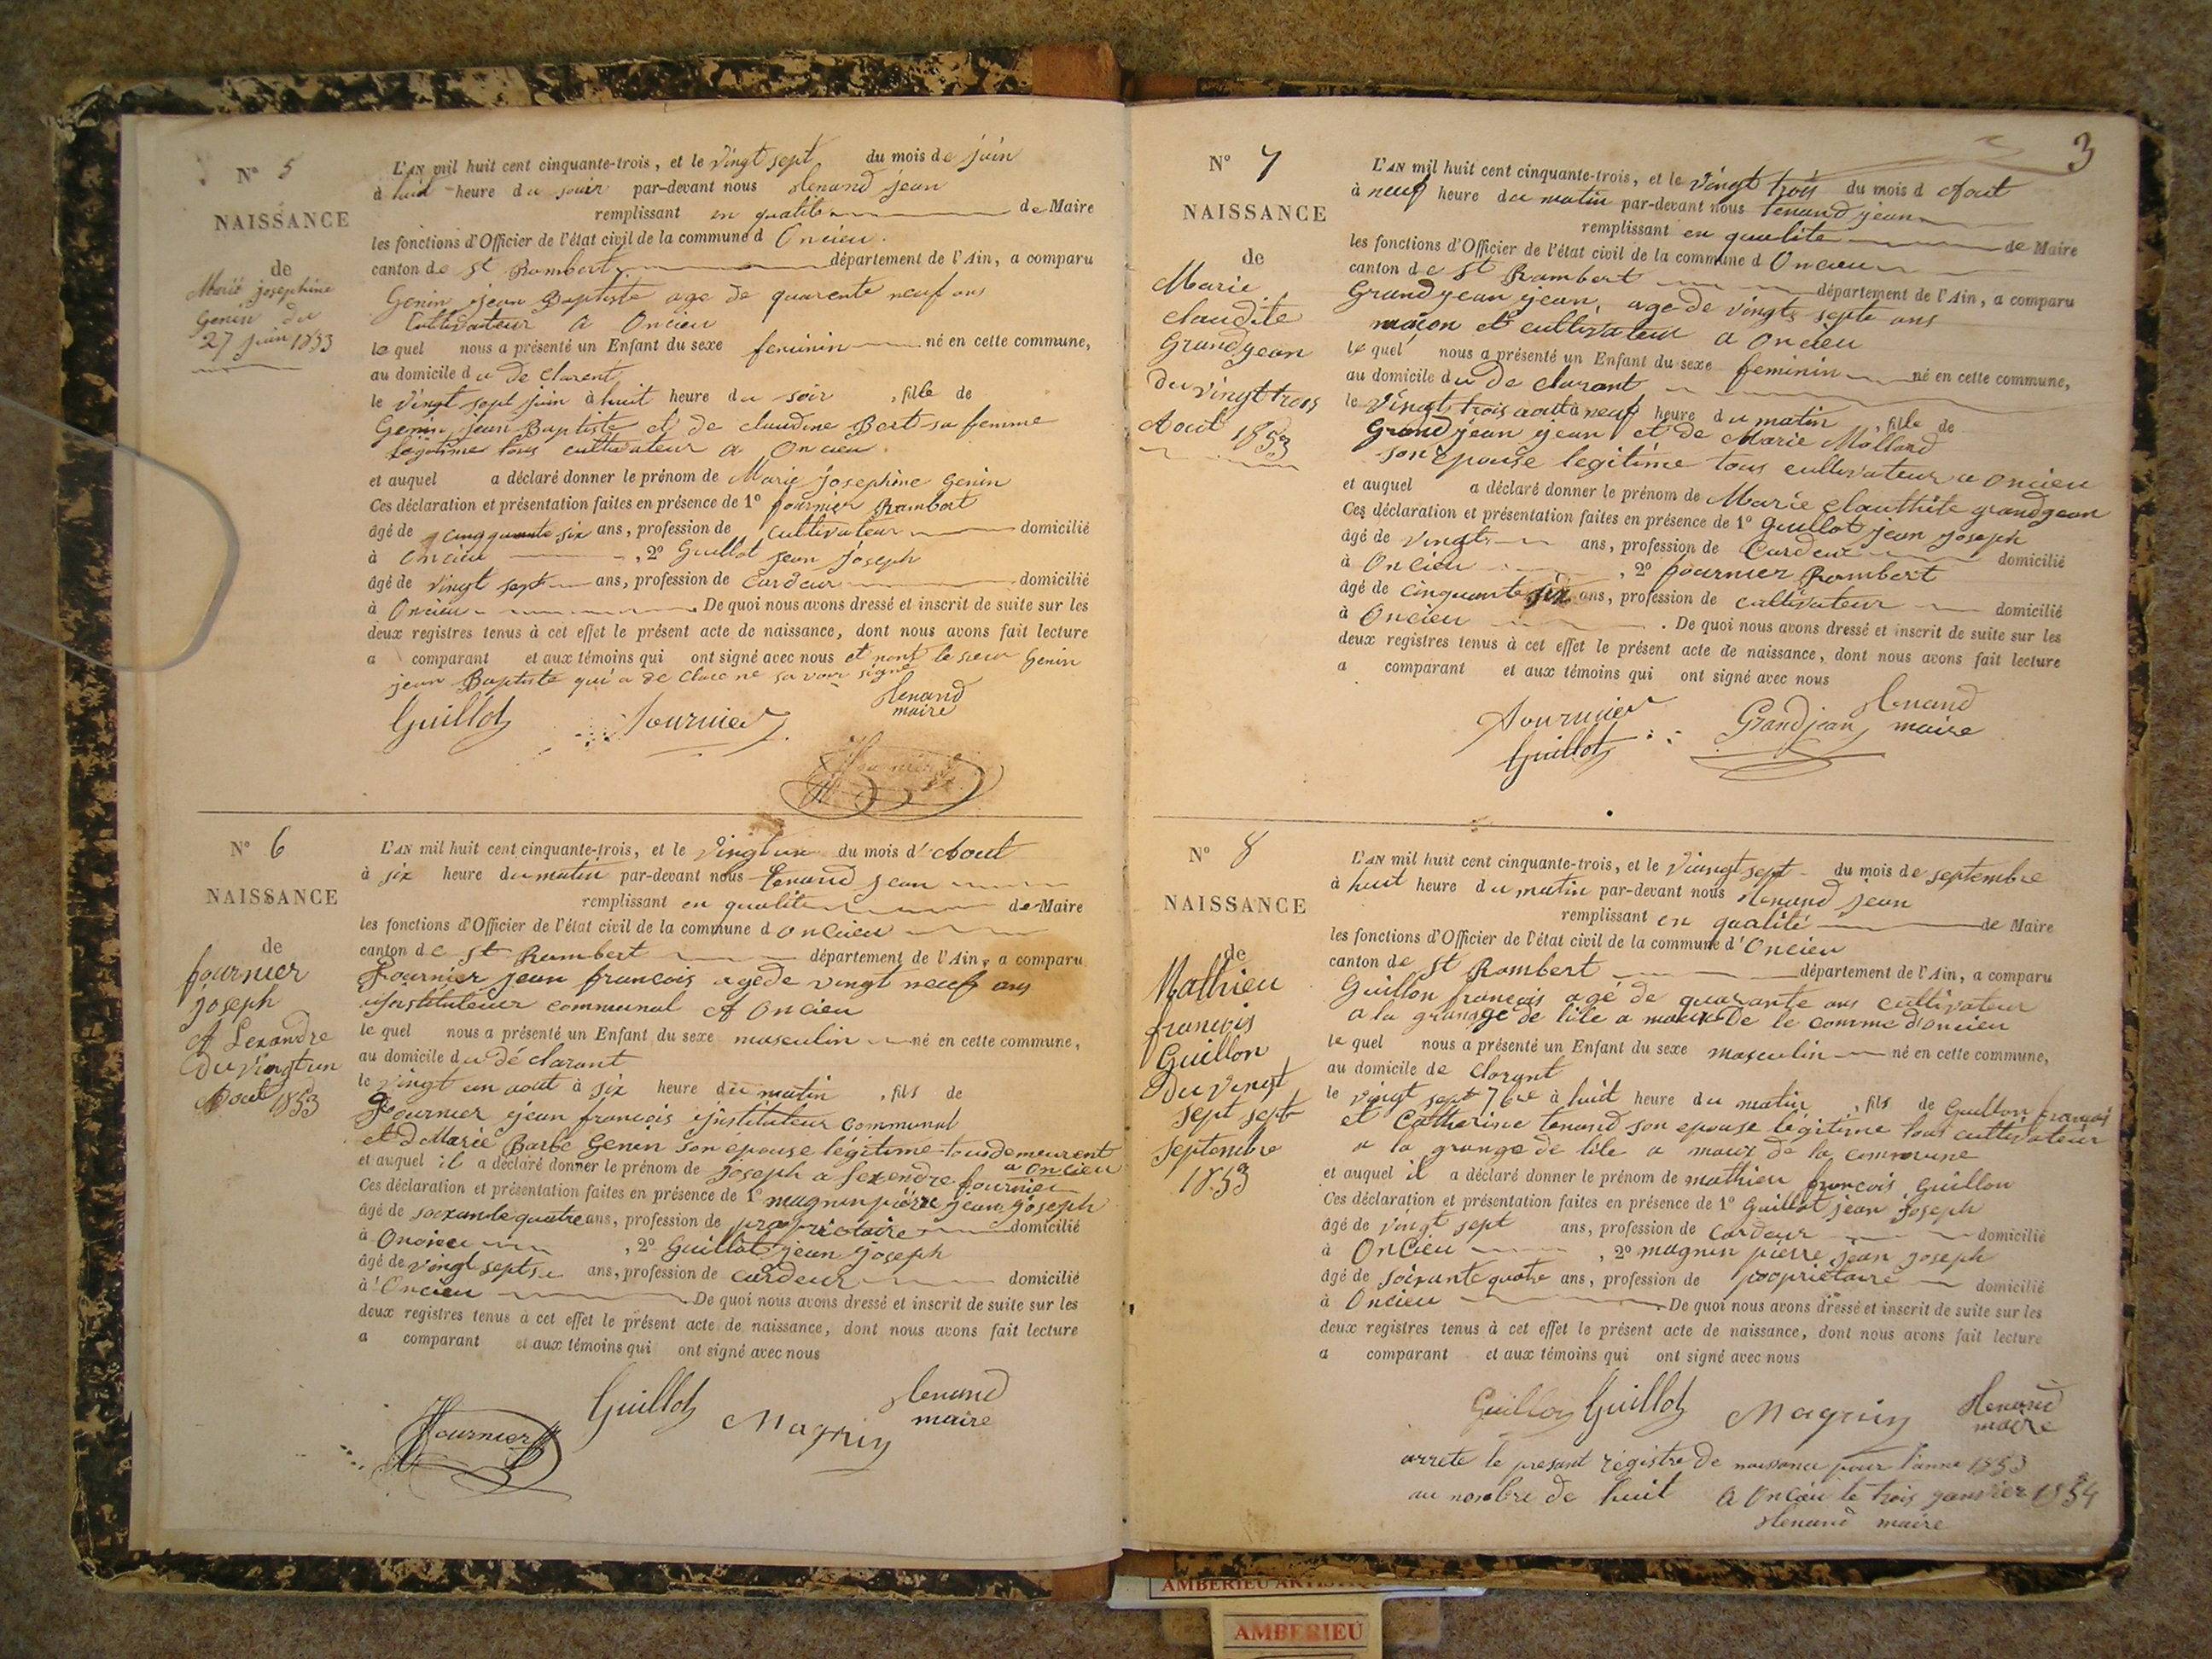 N° 5
NAISSANCE
de
Marie josephine
Genin du
27 juin 1853
L'AN mil huit cent cinquante-trois, et le Vingt sept du mois de juin
à huit heure du soir par-devant nous tenand jean
remplissant en qualite de Maire
les fonctions d'Officier de l'état civil de la commune d Oncieu
canton de St Rambert département de l'Ain, a comparu
Genin jean Baptiste age de quarente neuf ans
Cultivateur a Oncieu
le quel nous a présenté un Enfant du sexe feminin né en cette commune,
au domicile du de clarent
le Vingt sept juin à huit heure du soir , fille de
Genin jean Baptiste et de claudine Bert sa femme
légitime tous cultivateur a Oncieu
et auquel a déclaré donner le prénom de Marie josephine Genin
Ces déclaration et présentation faites en présence de 1° fournier Rambert
âgé de cinquante six ans, profession de cultivateur domicilié
à Oncieu , 2° Guillot jean joseph
âgé de vingt sept ans, profession de Cardeur domicilié
à Oncieu . De quoi nous avons dressé et inscrit de suite sur les
deux registres tenus à cet effet le présent acte de naissance, dont nous avons fait lecture
a comparant et aux témoins qui ont signé avec nous et nont le sieur Genin
jean Baptiste qui a de clare ne savoir signé
Guillot fournier tenand
maire
N° 6
NAISSANCE
de
fournier
joseph
A Lexandre
Du Vingt un
Aout 1853
L'AN mil huit cent cinquante-trois, et le Vingt un du mois d'Aout
à six heure du matin par-devant nous tenand jean
remplissant en qualite de Maire
les fonctions d'Officier de l'état civil de la commune d oncieu
canton de St Rambert département de l'Ain, a comparu
Fournier jean francois age de vingt neuf ans
jnstituteur communal A Oncieu
le quel nous a présenté un Enfant du sexe masculin né en cette commune,
au domicile du dé clarant
le Vingt un aout à six heure du matin , fils de
Fournier jean francois jnstituteur communal
et d Marie Barbe Genin son epouse légitime tous demeurent
a Oncieu
et auquel il a déclaré donner le prénom de joseph a lexendre fournier
Ces déclaration et présentation faites en présence de 1° magnin pierre jean joseph
âgé de soixante quatre ans, profession de propriétaire domicilié
à Oncieu , 2° Guillot jean joseph
âgé de vingt sept ans, profession de cardeur domicilié
à Oncieu . De quoi nous avons dressé et inscrit de suite sur les
deux registres tenus à cet effet le présent acte de naissance, dont nous avons fait lecture
a comparant et aux témoins qui ont signé avec nous
Fournier Guillot Magnin tenand
maire
3
N° 7
NAISSANCE
de
Marie
claudite
Grandjean
du vingt trois
Aout 1853
L'AN mil huit cent cinquante-trois, et le Vingt trois du mois d Aout
à neuf heure du matin par-devant nous tenand jean
remplissant en qualite de Maire
les fonctions d'Officier de l'état civil de la commune d Oncieu
canton de St Rambert département de l'Ain, a comparu
Grandjean jean, age de vingt septe ans
maçon et cultivateur a Oncieu
le quel nous a présenté un Enfant du sexe feminin né en cette commune,
au domicile du de clarant
le Vingt trois aout à neuf heure du matin , fille de
Grandjean jean et de Marie Molland
son epouse legitime tous cultivateur a oncieu
et auquel a déclaré donner le prénom de Marie clauthite grandjean
Ces déclaration et présentation faites en présence de 1° Guillot jean joseph
âgé de vingt ans, profession de Cardeur domicilié
à Oncieu , 2° fournier Rambert
âgé de cinquante six ans, profession de cultivateur domicilié
à Oncieu . De quoi nous avons dressé et inscrit de suite sur les
deux registres tenus à cet effet le présent acte de naissance, dont nous avons fait lecture
a comparant et aux témoins qui ont signé avec nous
fournier Grandjean tenand
Guillot maire
N° 8
NAISSANCE
de
Mathieu
francois
Guillon
Du Vingt
sept sept
septembre
1853
L'AN mil huit cent cinquante-trois, et le Viingt sept du mois de septembre
à huit heure du matin par-devant nous tenand jean
remplissant en qualité de Maire
les fonctions d'Officier de l'état civil de la commune d'Oncieu
canton de St Rambert département de l'Ain, a comparu
Guillon francois agé de quarante ans cultivateur
a la grange de lile a maux De le comme d'oncieu
le quel nous a présenté un Enfant du sexe masculin né en cette commune,
au domicile de clarant
le vingt sept 7bre à huit heure du matin , fils de Guillon francois
et Catherine tenand son epouse légitime tous cultivateur
a la grange de lile a maux de la commune
et auquel il a déclaré donner le prénom de mathieu francois Guillon
Ces déclaration et présentation faites en présence de 1° Guillot jean joseph
âgé de vingt sept ans, profession de Cardeur domicilié
à OnCieu , 2° magnin pierre jean joseph
âgé de soixante quatre ans, profession de propriétaire domicilié
à Oncieu . De quoi nous avons dressé et inscrit de suite sur les
deux registres tenus à cet effet le présent acte de naissance, dont nous avons fait lecture
a comparant et aux témoins qui ont signé avec nous
Guillon Guillot Magnin tenand
maire
arrete le present registre De naissance pour l'anne 1853
au nombre de huit a Oncieu le trois janvier 1854
tenand maire
AMBERIEU